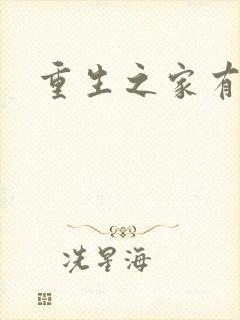 重生之家有
冼星海